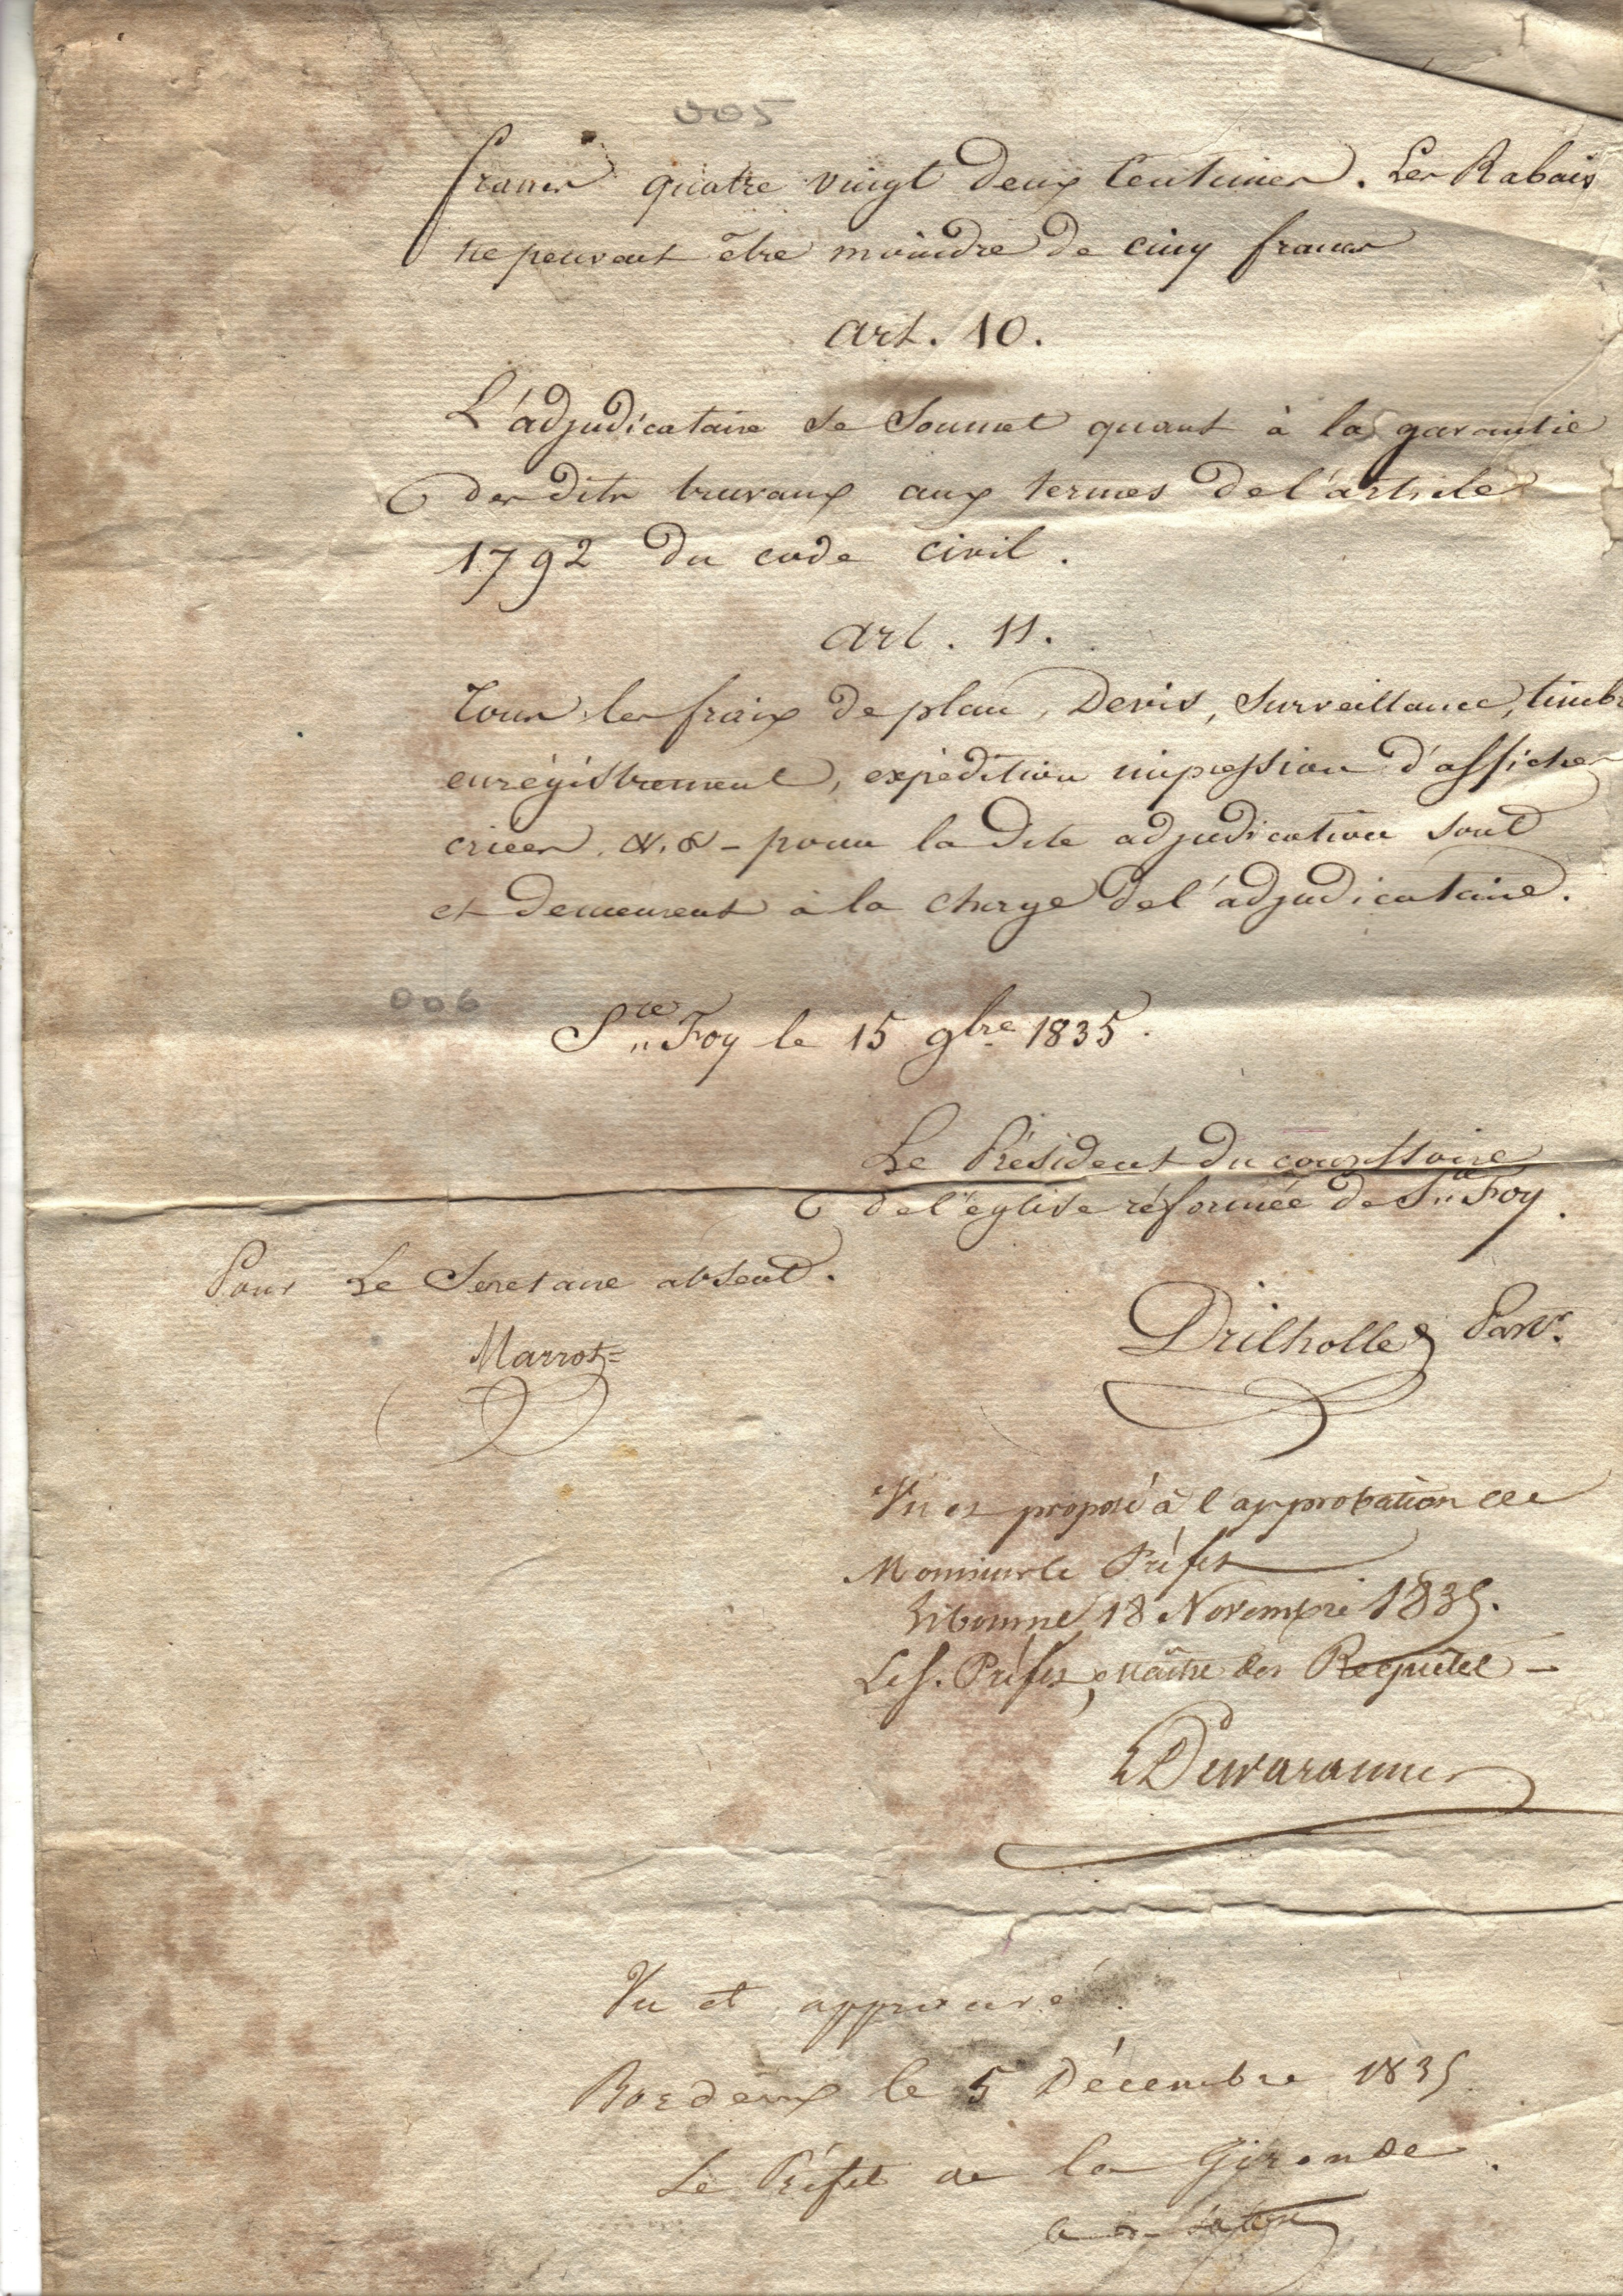 005
francs quatre vingt deux Centimes. Les Rabais
ne peuvent être moindre de cinq francs
art. 10.
L'adjudicataire se Soumet quant à la garantie
des dits travaux aux termes de l'article
1792 du code civil.
art. 11.
Tous les fraix de plan, Devis, Surveillance, timb
enrégistrement, expédition impression d'affiches
criées, &. & - pour la dite adjudication sont
et demeurent à la charge de l'adjudicataire.
006
Ste Foy le 15 9bre 1835.
Le Président du consistoire
de l'église réformée de Ste Foy.
Pour Le Secretaire absent.
Drilholle Pasr.
Marrot
Vu et proposé à l'approbation de
Monsieur le Préfet
Libourne, 18 Novembre 1835.
Le S. Préfet, Maître des Requêtes
Vu et approuvé.
Bordeaux le 5 Décembre 1835
Le Préfet de la Gironde.